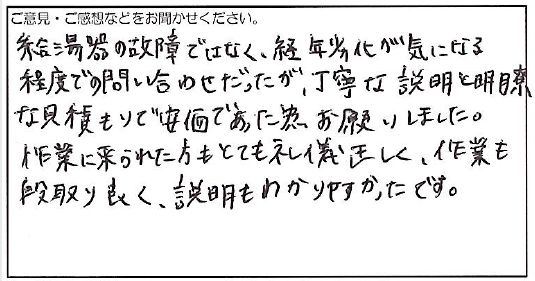 ご意見・ご感想などをお聞かせください。
給湯器の故障ではなく、経年劣化が気になる
程度での問い合わせだったが、丁寧な説明と明瞭
な見積もりで安価であった為お願いしました。
作業に来られた方もとても礼儀正しく、作業も
段取り良く、説明もわかりやすかったです。